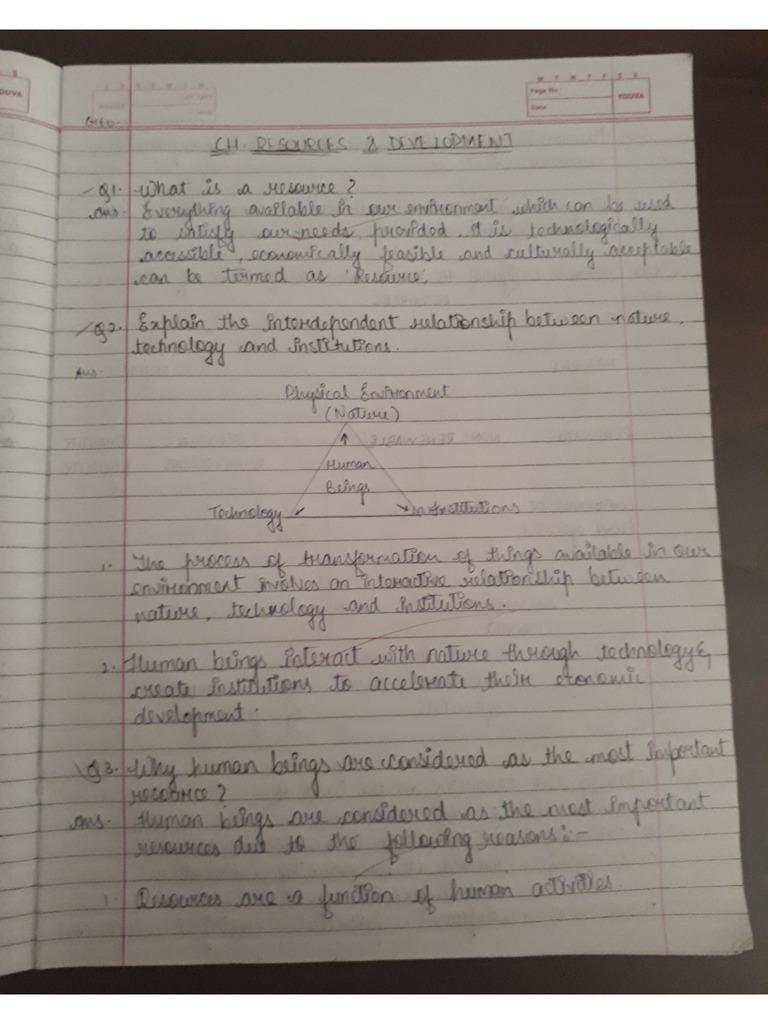 YOUVA
M T W T F S S
Page No.:
Date:
YOUVA
CH. RESOURCES & DEVELOPMENT
Q1. What is a resource?
Ans. Everything available in our environment which can be used
to satisfy our needs, provided, it is technologically
accessible, economically feasible and culturally acceptable
can be termed as 'Resource'.
Q2. Explain the interdependent relationship between nature,
technology and institutions.
Ans.
Physical Environment
(Nature)
Human
Beings
Technology
Institutions
1. The process of transformation of things available in our
environment involves an interactive relationship between
nature, technology and institutions.
2. Human beings interact with nature through technology &
create institutions to accelerate their economic
development.
Q3. Why human beings are considered as the most important
resource?
Ans. Human beings are considered as the most important
resources due to the following reasons:-
1. Resources are a function of human activities.